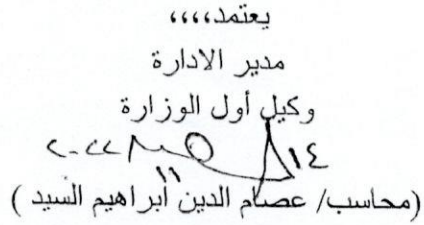 يعتمد،،،،
مدير الادارة
وكيل أول الوزارة
١٤
١١
٢٠٢٢
(محاسب/ عصام الدين ابراهيم السيد )